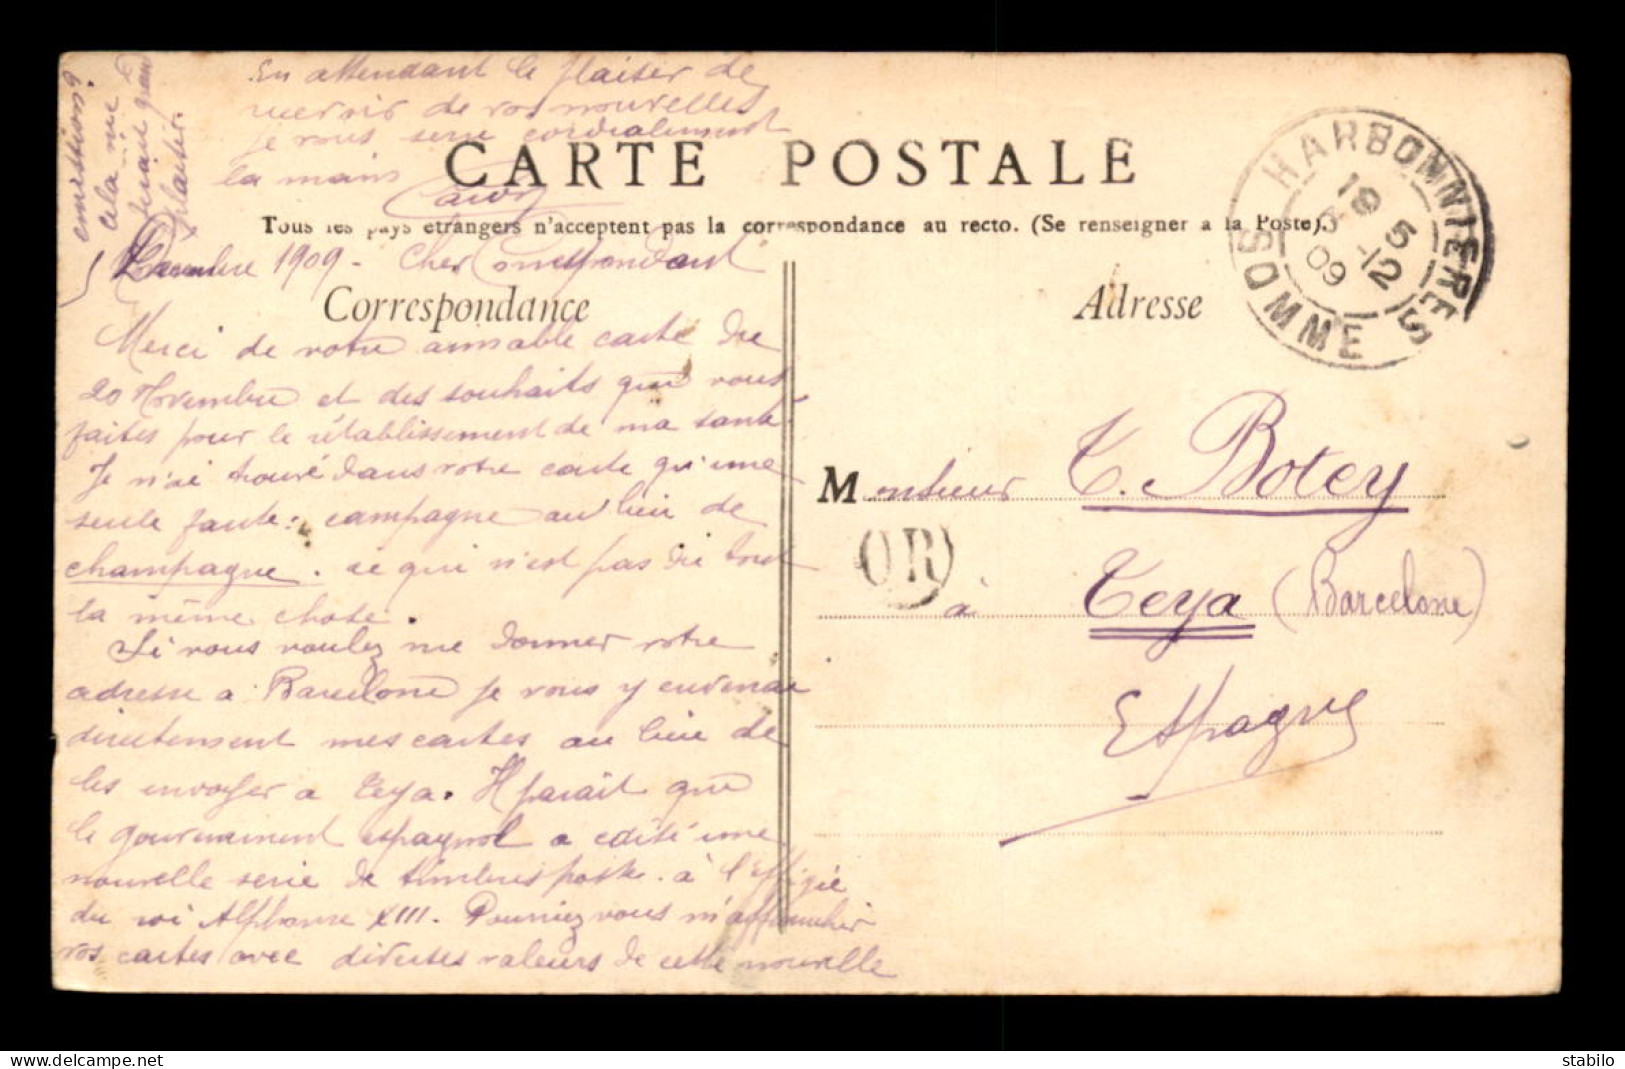 CARTE POSTALE
Tous les pays étrangers n'acceptent pas la correspondance au recto. (Se renseigner a la Poste).
Correspondance
Adresse
HARBONNIERES
SOMME
5 -12
09
OR
Monsieur T. Botey
à Teya (Barcelone)
Espagne
Décembre 1909 - Cher Correspondant
Merci de votre aimable carte du
20 Novembre et des souhaits que vous
faites pour le rétablissement de ma santé.
Je n'ai trouvé dans votre carte qu'une
seule faute: campagne au lieu de
champagne. ce qui n'est pas du tout
la même chose.
Si vous voulez me donner votre
adresse a Barcelone je vous y enverrai
directement mes cartes au lieu de
les envoyer a Teya. Il parait que
le gouvernement espagnol a edité une
nouvelle serie de timbres poste à l'Effigie
du roi Alphonse XIII. Pourriez vous m'affranchir
vos cartes avec diverses valeurs de cette nouvelle
emission?
cela me
ferait grand
plaisir.
En attendant le plaisir de
recevoir de vos nouvelles
je vous serre cordialement
la main
stabilo